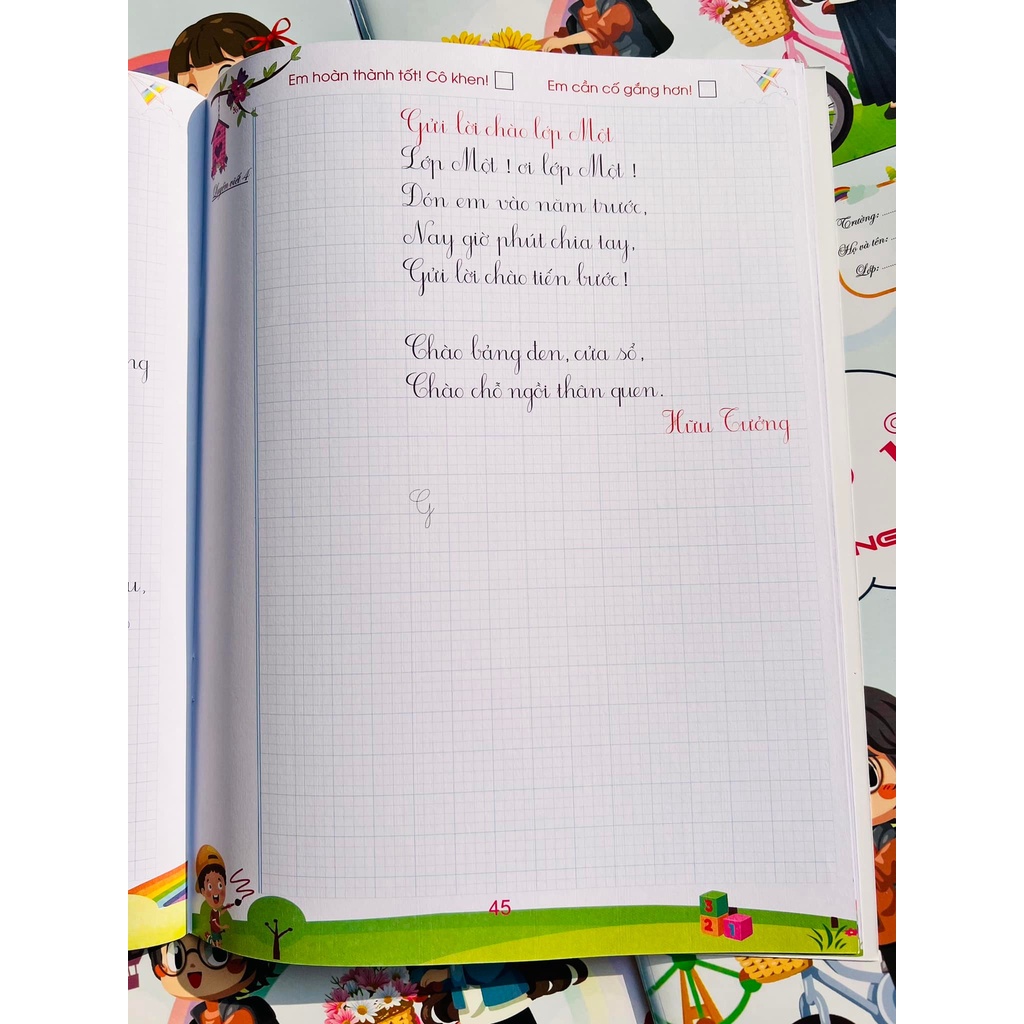 Em hoàn thành tốt! Cô khen!
Em cần cố gắng hơn!
Gửi lời chào lớp Một
Luyện viết 4
Lớp Một ! ơi lớp Một !
Đón em vào năm trước,
Nay giờ phút chia tay,
Gửi lời chào tiến bước !
Chào bảng đen, cửa sổ,
Chào chỗ ngồi thân quen.
Hữu Tưởng
G
45
3
2 1
ng
u,
Trường:
Họ và tên:
Lớp: